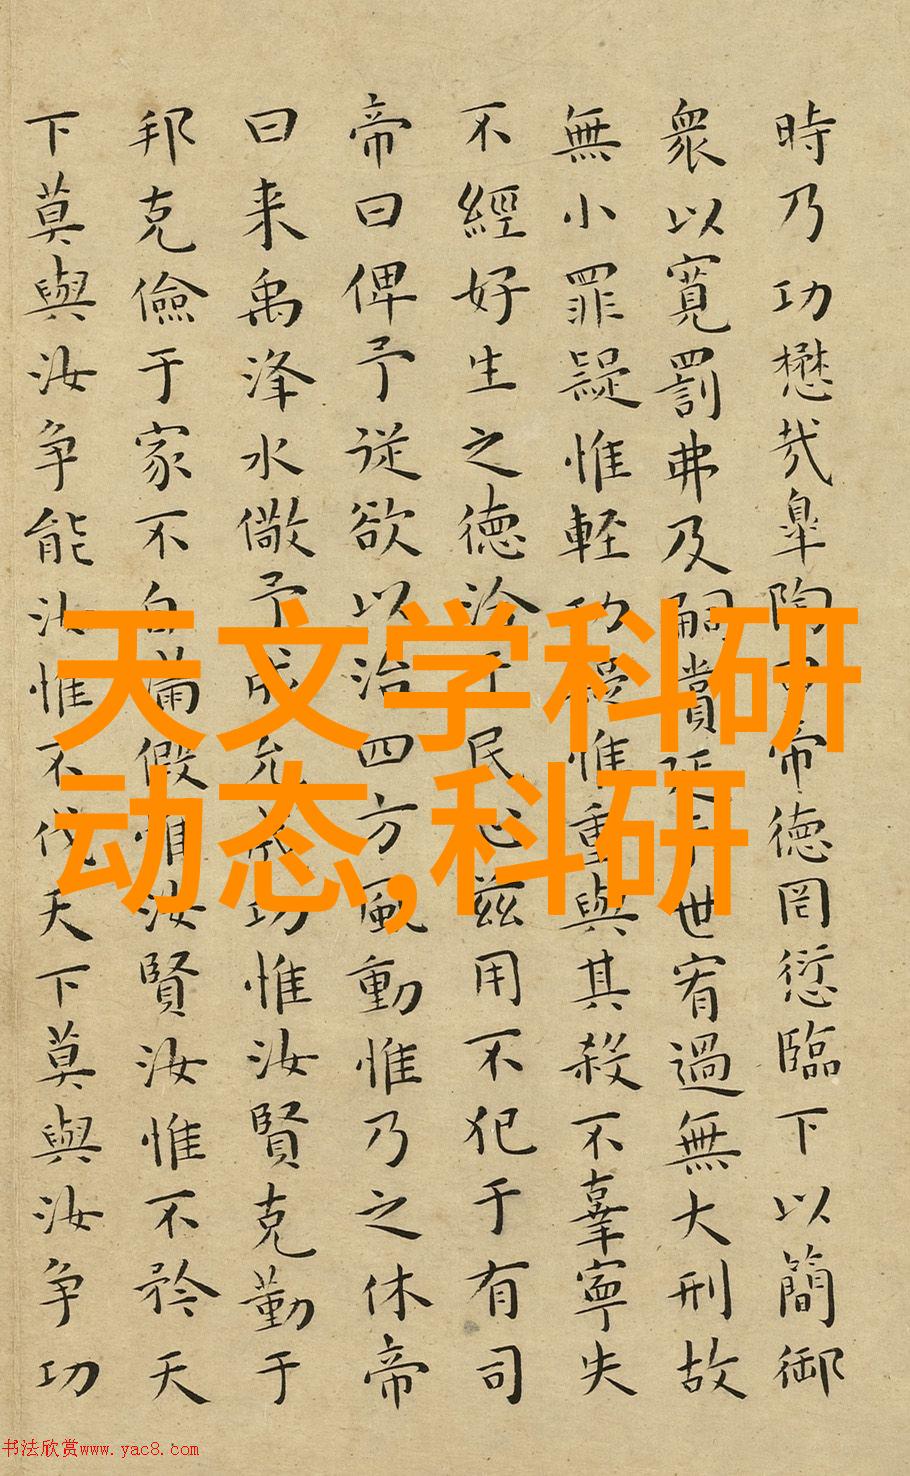 時乃功懋哉皐陶曰帝徳罔愆臨下以簡御
衆以寛罰弗及嗣賞延于世宥過無大刑故
無小罪疑惟軽功疑惟重與其殺不辜寧失
不經好生之徳洽于民心兹用不犯于有司
帝曰俾予従欲以治四方風動惟乃之休帝
曰来禹洚水儆予成允成功惟汝賢克勤于
邦克儉于家不自滿假惟汝賢汝惟不矜天
下莫與汝争能汝惟不伐天下莫與汝争功
天文学科研
动态,科研
书法欣赏www.yac8.com